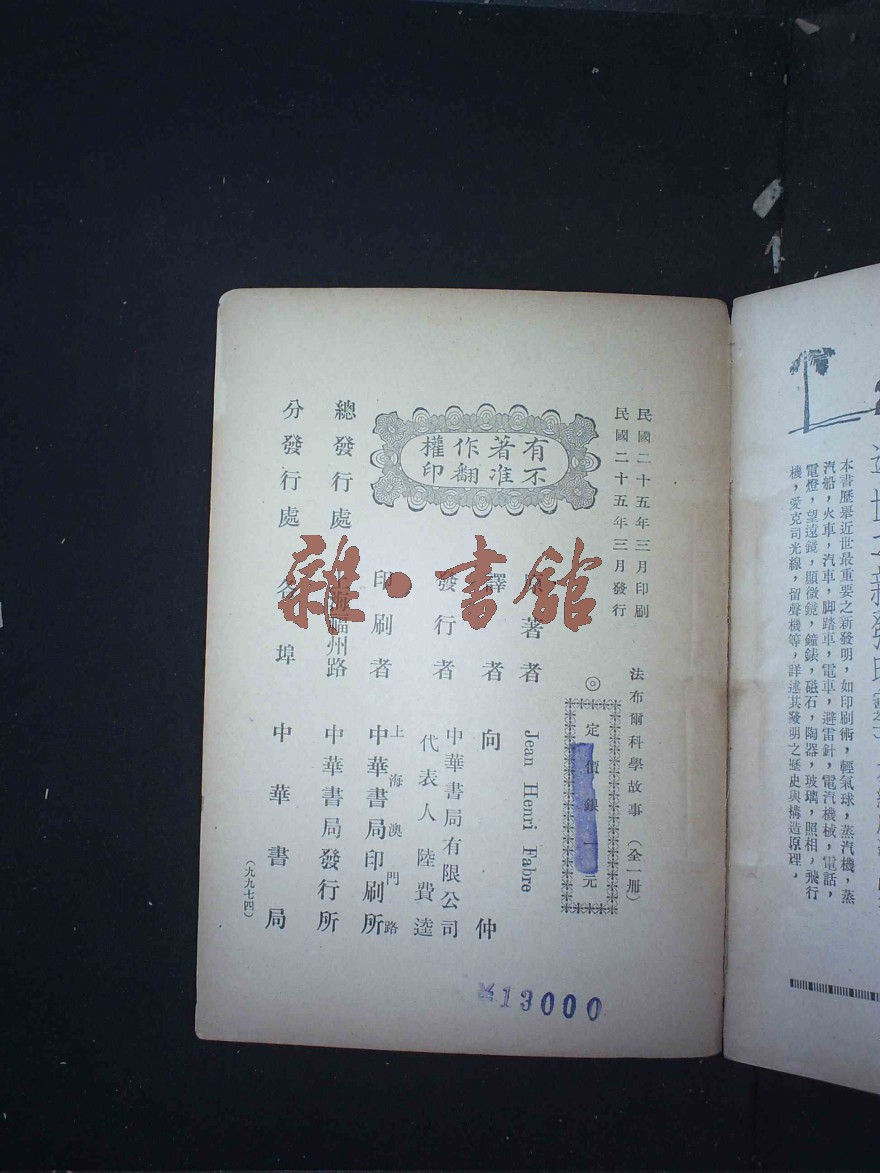 民國二十五年三月印刷
民國二十五年三月發行
法布爾科學故事（全一册）
◎定價銀一元
有著作權
不准翻印
原著者 Jean Henri Fabre
譯者 向仲
發行者 中華書局有限公司
代表人 陸費逵
印刷者 上海澳門路
中華書局印刷所
總發行處 上海福州路 中華書局發行所
分發行處 各埠 中華書局
（九九七四）
¥13000
雜·書館
本書歷舉近世最重要之新發明，如印刷術，輕氣球，蒸汽機，蒸
汽船，火車，汽車，脚踏車，電車，避雷針，電汽機械，電話，
電燈，望遠鏡，顯微鏡，鐘錶，磁石，陶器，玻璃，照相，飛行
機，愛克司光線，留聲機等，詳述其發明之歷史與構造原理，